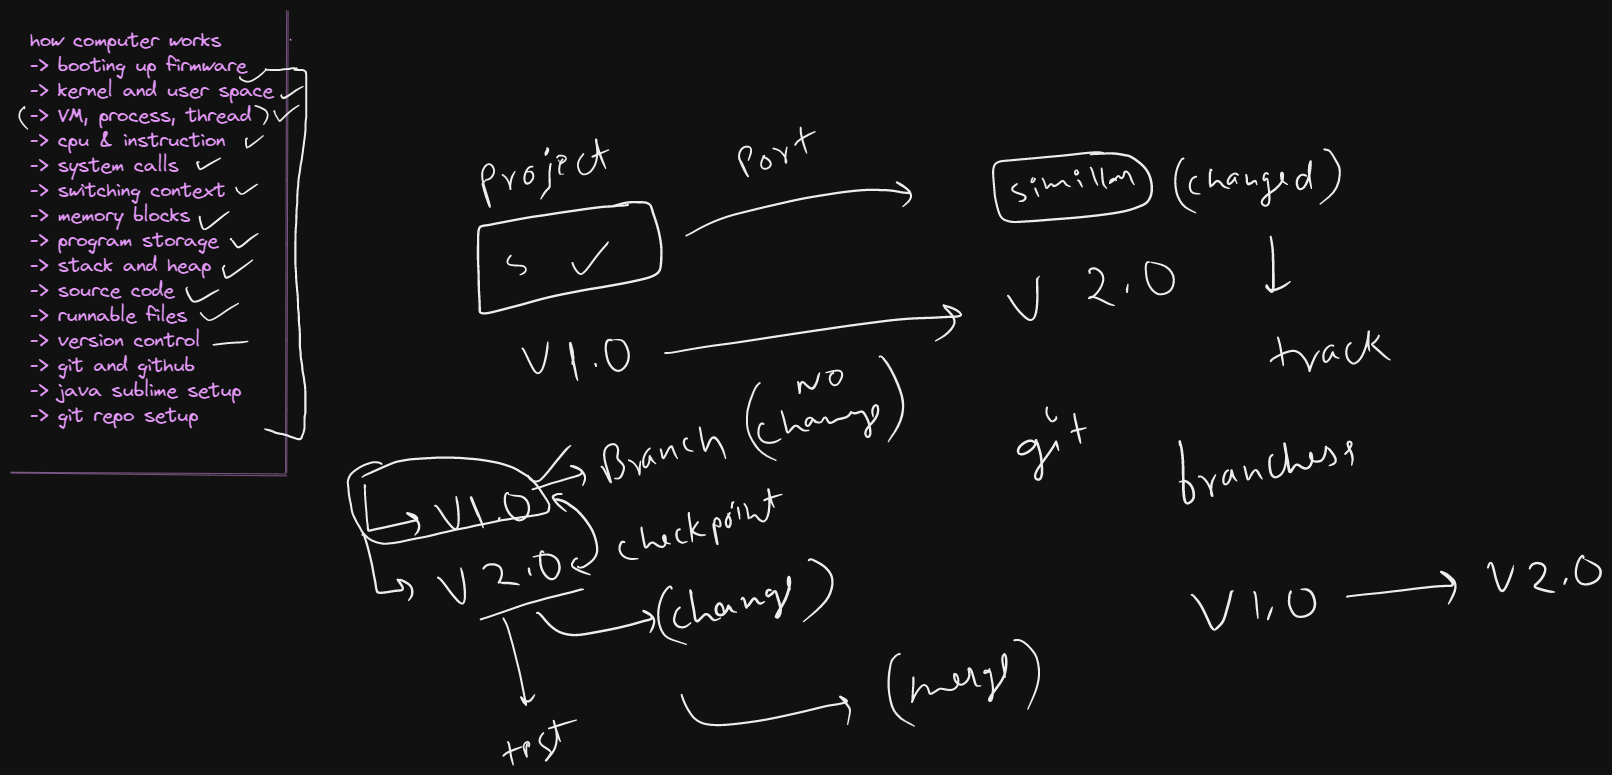 how computer works
-> booting up firmware
-> kernel and user space
(-> VM, process, thread)
-> cpu & instruction
-> system calls
-> switching context
-> memory blocks
-> program storage
-> stack and heap
-> source code
-> runnable files
-> version control
-> git and github
-> java sublime setup
-> git repo setup
Project
Port
(changed)
S
V 2.0
V1.0
track
Branch (NO
change)
git
branchess
V1.0
checkpoint
V2.0
(change)
V1.0
V2.0
(merge)
test